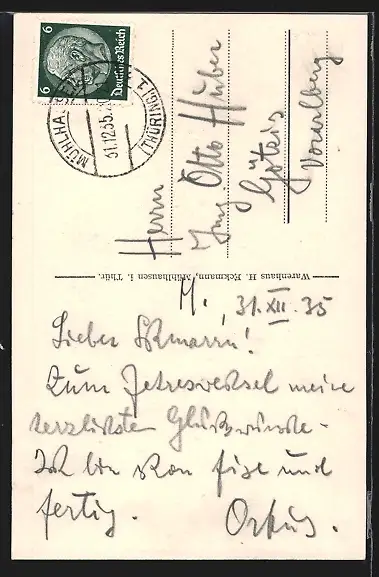 6 6
Deutsches Reich
MÜHLHA
31.12.35.
(THÜRINGEN)
Herrn
Jng. Otto Huber
Götzis
Vorarlberg
Warenhaus H. Eckmann, Mühlhausen i. Thür.
M., 31.XII.35
Lieber
Zum Jahreswechsel meine
herzlichsten Glückwünsche -
Ich bin schon fixe und
fertig.
Orkus.